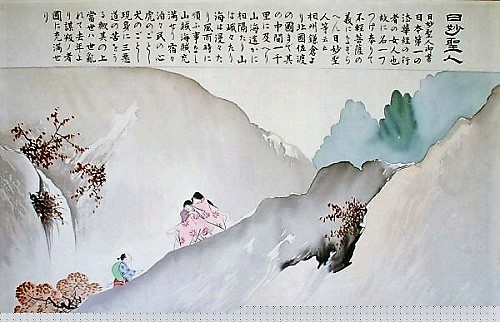 日妙聖人
日妙聖人御書
日本第一の
法華経の行
者の女人也
故に名一つ
つけ奉りて
不軽菩薩の
義になぞら
へん日妙聖
人等云云
相州鎌倉よ
り北国佐渡
の国まで其
の中間一千
里に及べり
山海遥かに
相隔たり山
は峨々たり
海は漫々た
り風雨時に
順う事なし
山賊海賊充
満せり宿々
泊々民の心
虎のごとし
犬のごとし
現身に三悪
道の苦をう
るか其の上
当世の世乱
れて去年よ
り謀叛の者
国に充満せ